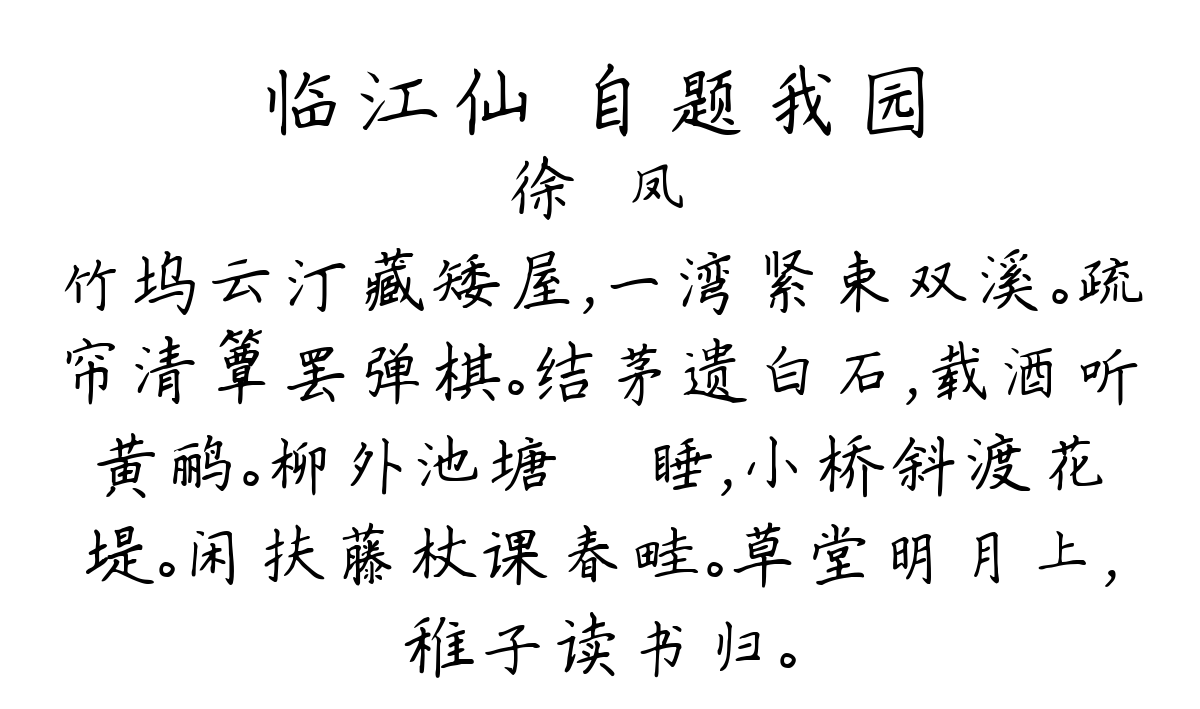 临江仙 自题我园
徐 凤
竹坞云汀藏矮屋,一湾紧束双溪。疏
帘清簟罢弹棋。结茅遗白石,载酒听
黄鹂。柳外池塘 睡,小桥斜渡花
堤。闲扶藤杖课春畦。草堂明月上,
稚子读书归。